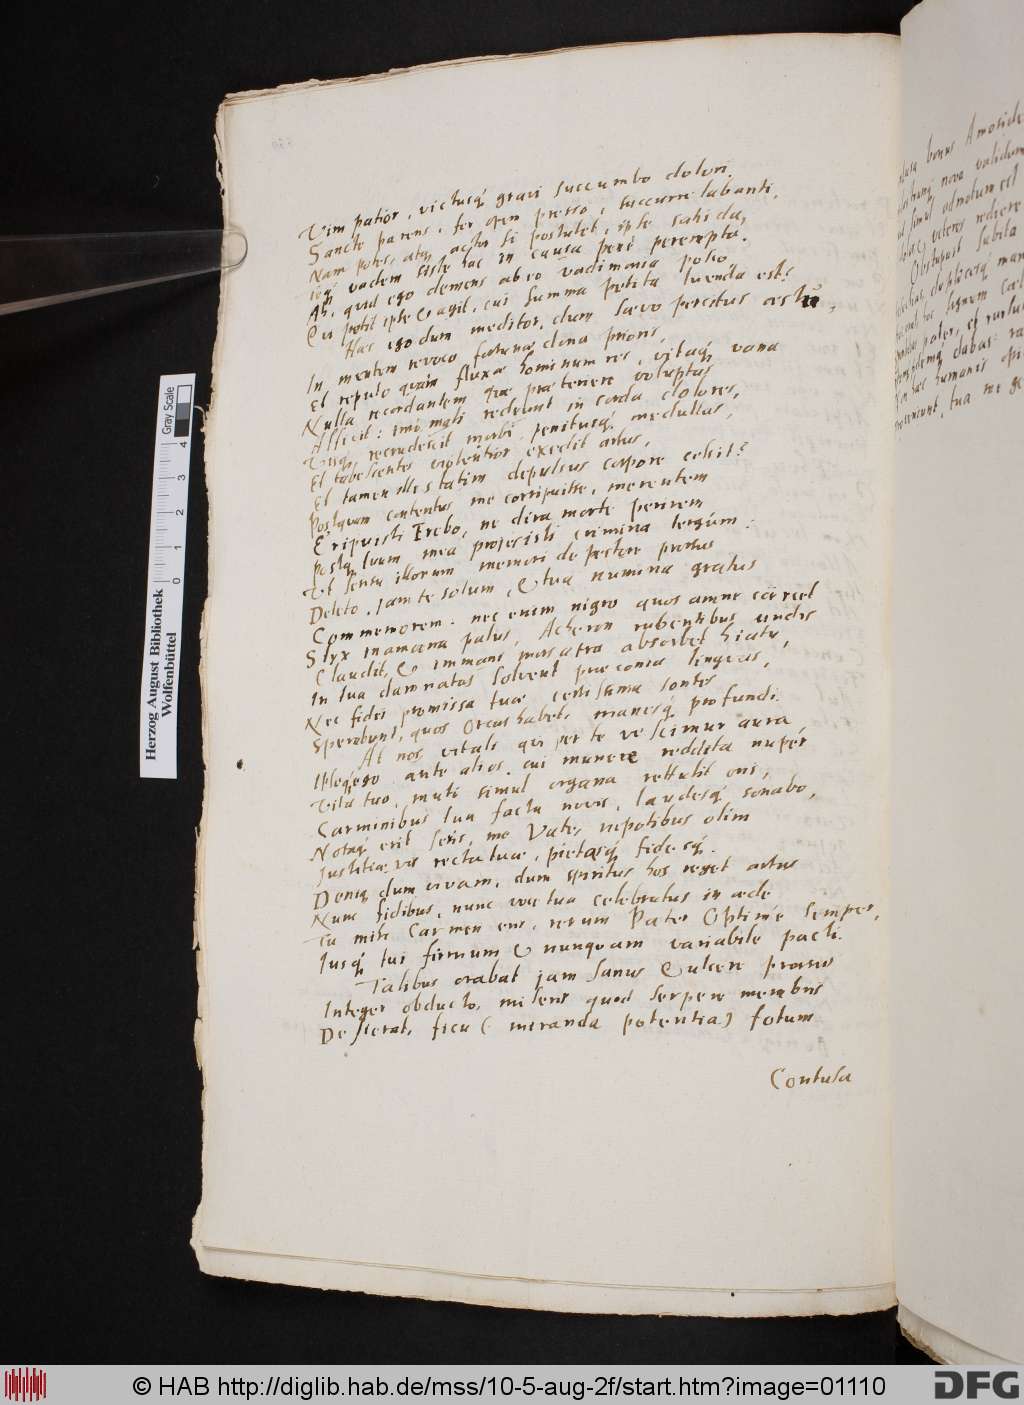 Vim patior, victusq́ gravi succumbo dolori.
Sancte parens, fer opem presso, succurre labanti.
Nam potes, atq́ actor si postulet, ipse satis da,
teq́ vadem siste hac in causa peri perempta.
Ah, quid ego demens ab eo vadimonia posco,
Qui petit ipse & agit, cui summa petita luenda est?
Hæc ego dum meditor, dum sævo percitus æstu,
In mentem revoco fortunæ dona prioris,
Et reputo quàm fluxæ hominum res, vitaq́ vana
Nulla recordantem quæ præteriere voluptas
Afficit: imò magis redeunt in corda dolores,
Usq́ recrudescit morbi, penitusq́ medullas,
Et tabescentes violentior exedit artus.
Et tamen ille statim depulsus corpore cessit?
Postquam contentus me corripuisse, merentem
Eripuisti Erebo, ne dira morte perirem
postq́ tuum mea projecisti crimina tergum:
Ut sensu illorum memori de pectore prorsus
Deleto, jam te solum, & tua numina gratus
Commemorem. nec enim nigro quos amne coërcet
Styx inamœna palus, Acheron rubentibus undis
Claudit, & immani mors atra absorbet hiatu,
In tua damnatas solvent præconia linguas,
Nec fidei promissa tuæ certissima sontes
Sperabunt, quos Orcus habet, manesq́ profundi.
At nos vitali qui per te vescimur aura
Ipseq́ ego ante alios, cui munere reddita nuper
Vita tuo, muti simul organa rettulit oris,
Carminibus tua facta novis, laudesq́ sonabo,
Notaq́ erit seris, me Vate, nepotibus olim
Justitiæ vis recta tuæ, pietasq́ fidesq́.
Deniq́ dum vivam, dum spiritus hos reget artus
Nunc fidibus, nunc voce tua celebratus in æde
Tu mihi Carmen eris, rerum Pater Optime semper,
Jusq́ tui firmum & nunquam variabile pacti.
Talibus orabat jam sanus & ulcere prorsus
Integer obducto, miseris quod serpere membris
Desierat, ficu (miranda potentia) fotum
Contusa
Herzog August Bibliothek
Wolfenbüttel
0 1 2 3 4 Gray Scale
© HAB http://diglib.hab.de/mss/10-5-aug-2f/start.htm?image=01110
DFG